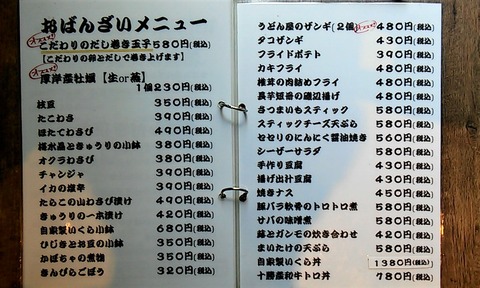 おばんざいメニュー
オススメ!
こだわりのだし巻き玉子580円(税込)
【こだわりの卵とだしで巻き上げます】
オススメ!
厚岸産牡蠣【生or蒸】
1個230円(税込)
枝豆 350円(税込)
たこわさ 390円(税込)
ほたてわさび 490円(税込)
梅水晶ときゅうりの小鉢 380円(税込)
オクラわさび 380円(税込)
チャンジャ 390円(税込)
イカの塩辛 390円(税込)
たらこの山わさび漬け 490円(税込)
きゅうりの一本漬け 420円(税込)
自家製いくら小鉢 680円(税込)
ひじきとお豆の小鉢 350円(税込)
かぼちゃの煮物 350円(税込)
きんぴらごぼう 320円(税込)
うどん屋のザンギ(2個) オススメ! 480円(税込)
タコザンギ 430円(税込)
フライドポテト 390円(税込)
カキフライ 480円(税込)
椎茸の肉詰めフライ 480円(税込)
長芋短冊の磯辺揚げ 480円(税込)
さつまいもスティック 580円(税込)
スティックチーズ天ぷら 580円(税込)
セセリのにんにく醤油焼き 560円(税込)
シーザーサラダ 580円(税込)
手作り豆腐 430円(税込)
揚げ出汁豆腐 430円(税込)
焼きナス 450円(税込)
豚バラ軟骨のトロトロ煮 580円(税込)
サバの味噌煮 580円(税込)
蕗とガンモの炊き合わせ 420円(税込)
まいたけの天ぷら 580円(税込)
自家製いくら丼 1380円(税込)
十勝産和牛トロ丼 780円(税込)